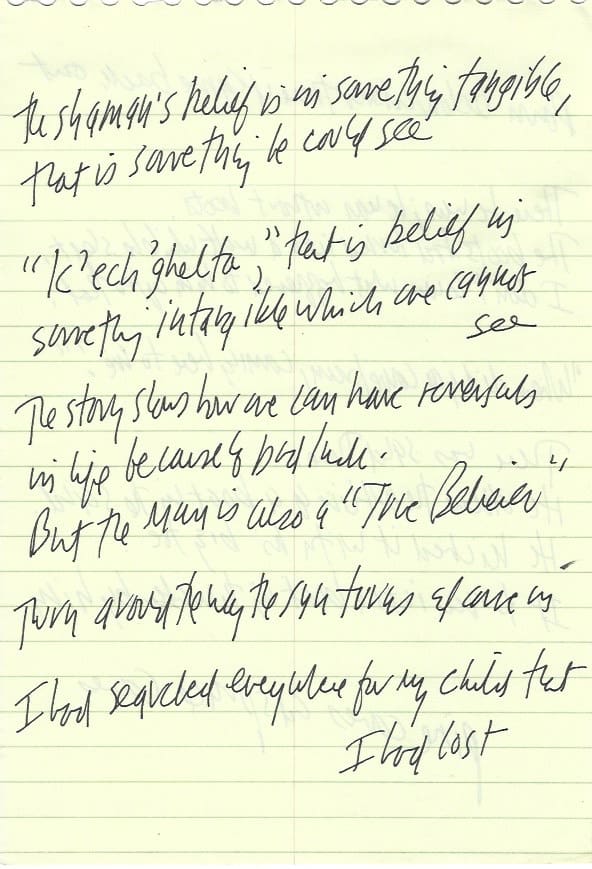 The shaman's belief is in something tangible,
that is something he could see
"K'ech'ghelta," that is belief in
something intangible which one cannot
see
The story shows how one can have reversals
in life because of bad luck.
But the man is also a "True Believer"
Turn around the way the sun turns & come in.
I had searched everywhere for my child that
I had lost